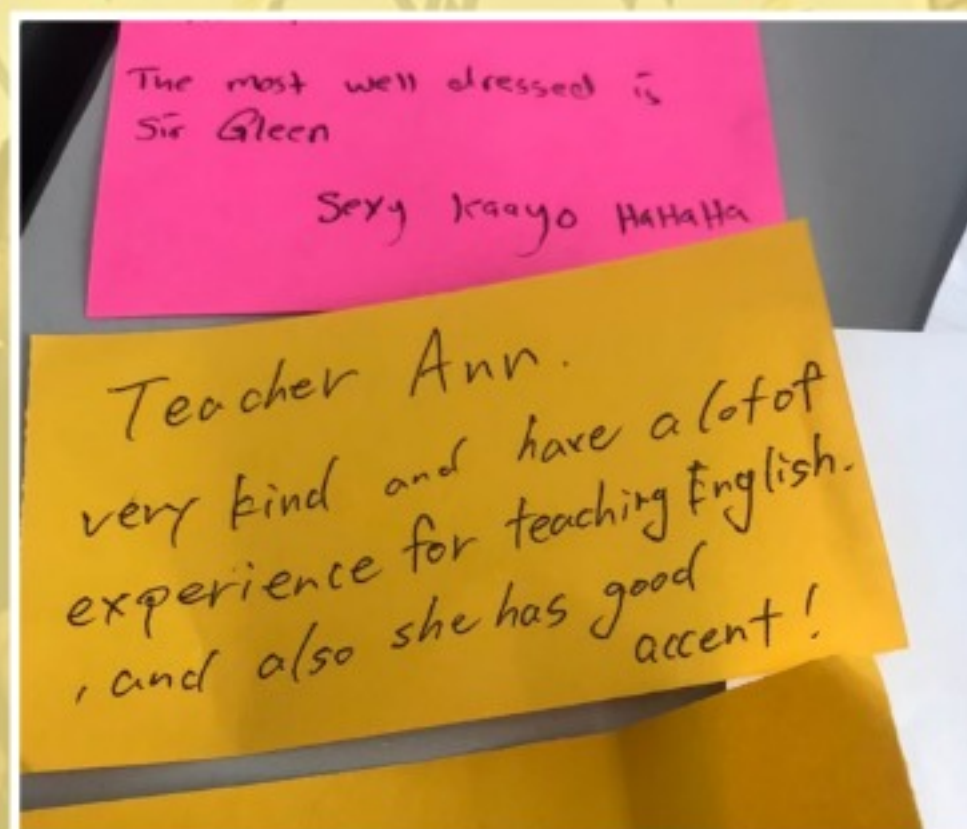 The most well dressed is
Sir Gleen
Sexy kaayo HaHaHa
Teacher Ann.
very kind and have a lot of
experience for teaching English.
, and also she has good
accent!